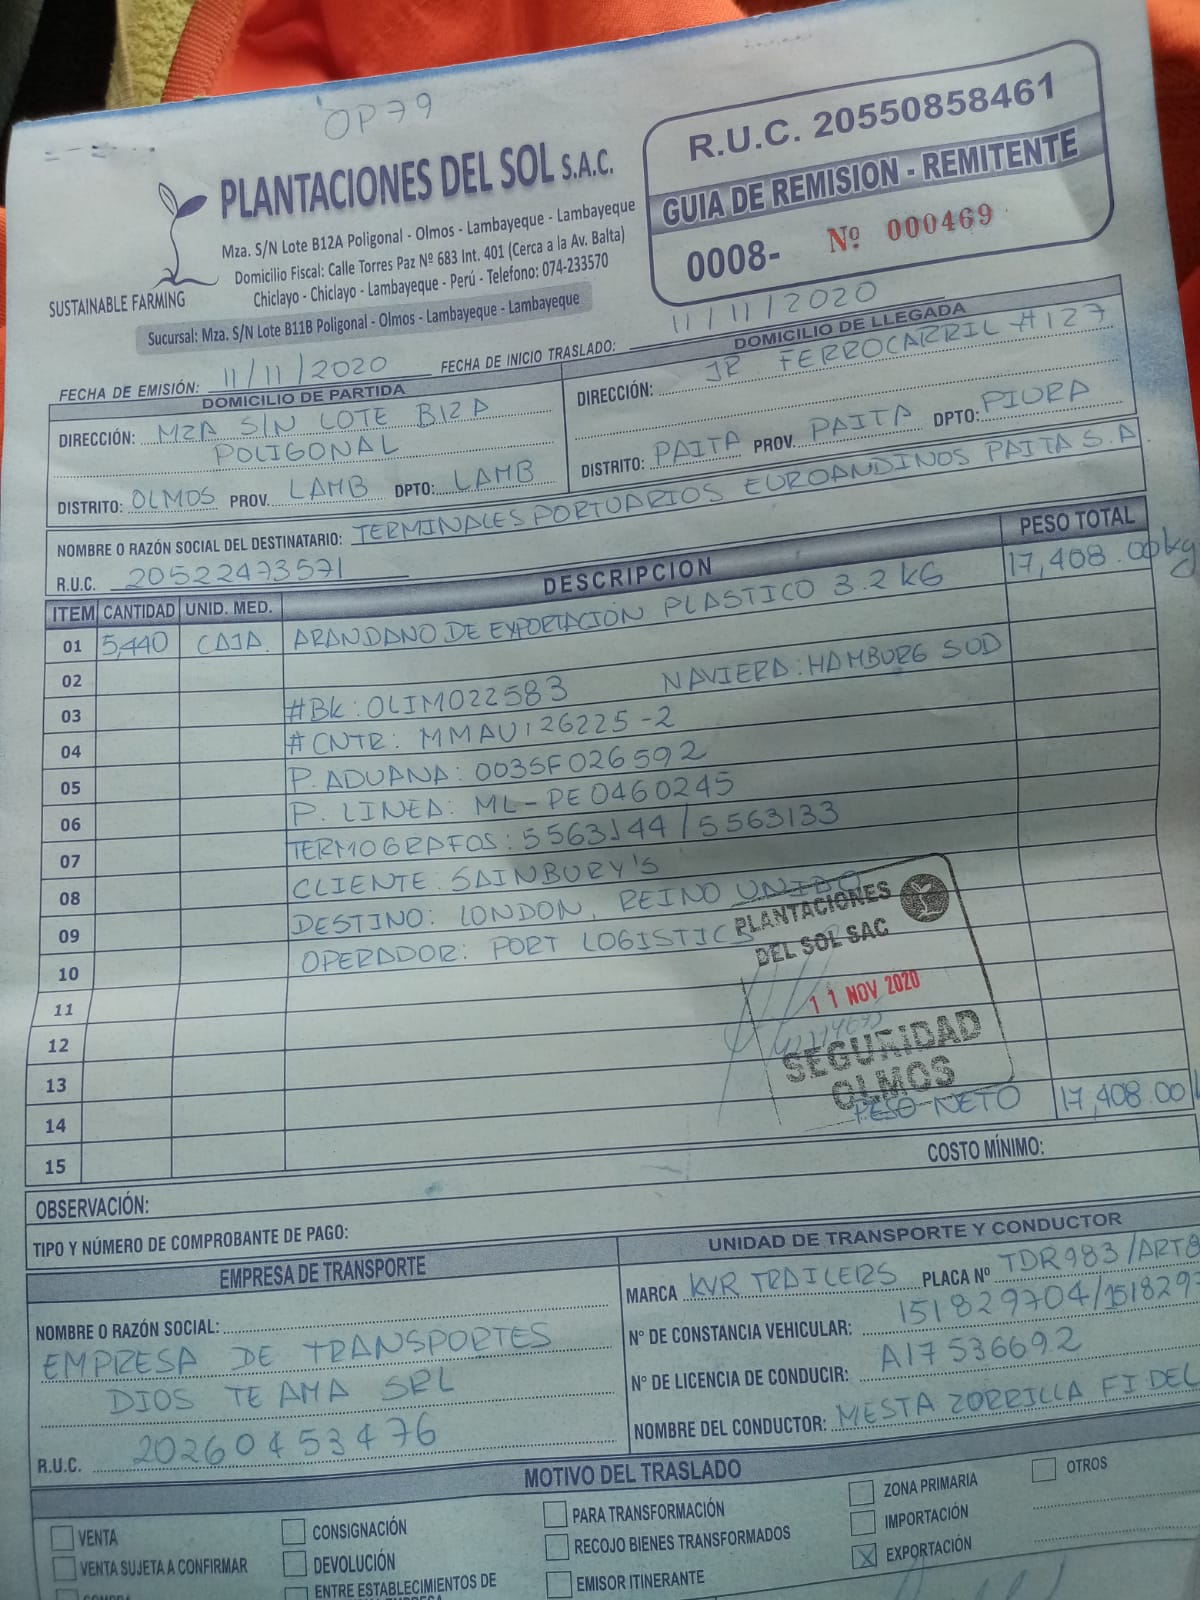 OP79
PLANTACIONES DEL SOL S.A.C.
Mza. S/N Lote B12A Poligonal - Olmos - Lambayeque - Lambayeque
Domicilio Fiscal: Calle Torres Paz Nº 683 Int. 401 (Cerca a la Av. Balta)
Chiclayo - Chiclayo - Lambayeque - Perú - Telefono: 074-233570
SUSTAINABLE FARMING
Sucursal: Mza. S/N Lote B11B Poligonal - Olmos - Lambayeque - Lambayeque
R.U.C. 20550858461
GUIA DE REMISION - REMITENTE
0008- Nº 000469
FECHA DE EMISIÓN: 11/11/2020 FECHA DE INICIO TRASLADO: 11/11/2020
DOMICILIO DE PARTIDA
DIRECCIÓN: MZA S/N LOTE B12A
POLIGONAL
DISTRITO: OLMOS PROV. LAMB DPTO: LAMB
DOMICILIO DE LLEGADA
DIRECCIÓN: JR FERROCARRIL #127
DISTRITO: PAITA PROV. PAITA DPTO: PIURA
NOMBRE O RAZÓN SOCIAL DEL DESTINATARIO: TERMINALES PORTUARIOS EUROANDINOS PAITA S.A
R.U.C. 20522473571
ITEM CANTIDAD UNID. MED. DESCRIPCION PESO TOTAL
01 5,440 CAJA. ARANDANO DE EXPORTACIÓN PLASTICO 3.2 KG 17,408.00kg
02
03 #BK: OLIM022583 NAVIERA: HAMBURG SUD
04 # CNTR: MMAU126225-2
05 P. ADUANA: 0035F026592
06 P. LINEA: ML-PE0460245
07 TERMOGRAFOS: 5563144/5563133
08 CLIENTE: SAINBURY'S
09 DESTINO: LONDON, REINO UNIDO
10 OPERADOR: PORT LOGISTICS
11
12
13
14 PESO NETO 17,408.00
15
PLANTACIONES
DEL SOL SAC
11 NOV 2020
SEGURIDAD
OLMOS
COSTO MÍNIMO:
OBSERVACIÓN:
TIPO Y NÚMERO DE COMPROBANTE DE PAGO:
EMPRESA DE TRANSPORTE
NOMBRE O RAZÓN SOCIAL:
EMPRESA DE TRANSPORTES
DIOS TE AMA SRL
R.U.C. 20260453476
UNIDAD DE TRANSPORTE Y CONDUCTOR
MARCA KVR TRAILERS PLACA Nº TDR983/ART8
N° DE CONSTANCIA VEHICULAR: 151829704/1518297
N° DE LICENCIA DE CONDUCIR: A17536692
NOMBRE DEL CONDUCTOR: MESTA ZORRILLA FIDEL
MOTIVO DEL TRASLADO
VENTA
VENTA SUJETA A CONFIRMAR
COMPRA
CONSIGNACIÓN
DEVOLUCIÓN
ENTRE ESTABLECIMIENTOS DE
PARA TRANSFORMACIÓN
RECOJO BIENES TRANSFORMADOS
EMISOR ITINERANTE
ZONA PRIMARIA
IMPORTACIÓN
X EXPORTACIÓN
OTROS